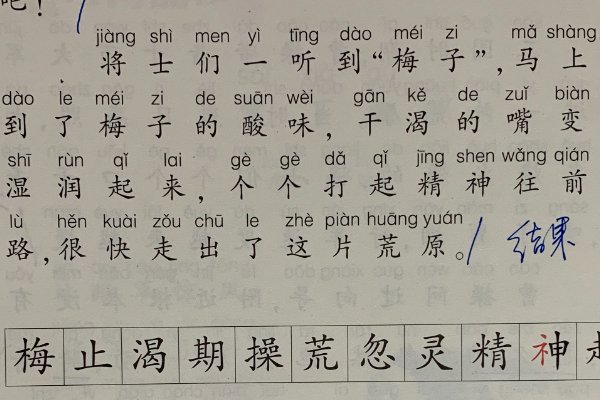 吧！
jiàng shì men yì tīng dào méi zi mǎ shàng
将士们一听到“梅子”，马上
dào le méi zi de suān wèi gān kě de zuǐ biàn
到了梅子的酸味，干渴的嘴变
shī rùn qǐ lai gè gè dǎ qǐ jīng shen wǎng qián
湿润起来，个个打起精神往前
lù hěn kuài zǒu chū le zhè piàn huāng yuán
路，很快走出了这片荒原。/ 结果
梅止渴期操荒忽灵精神